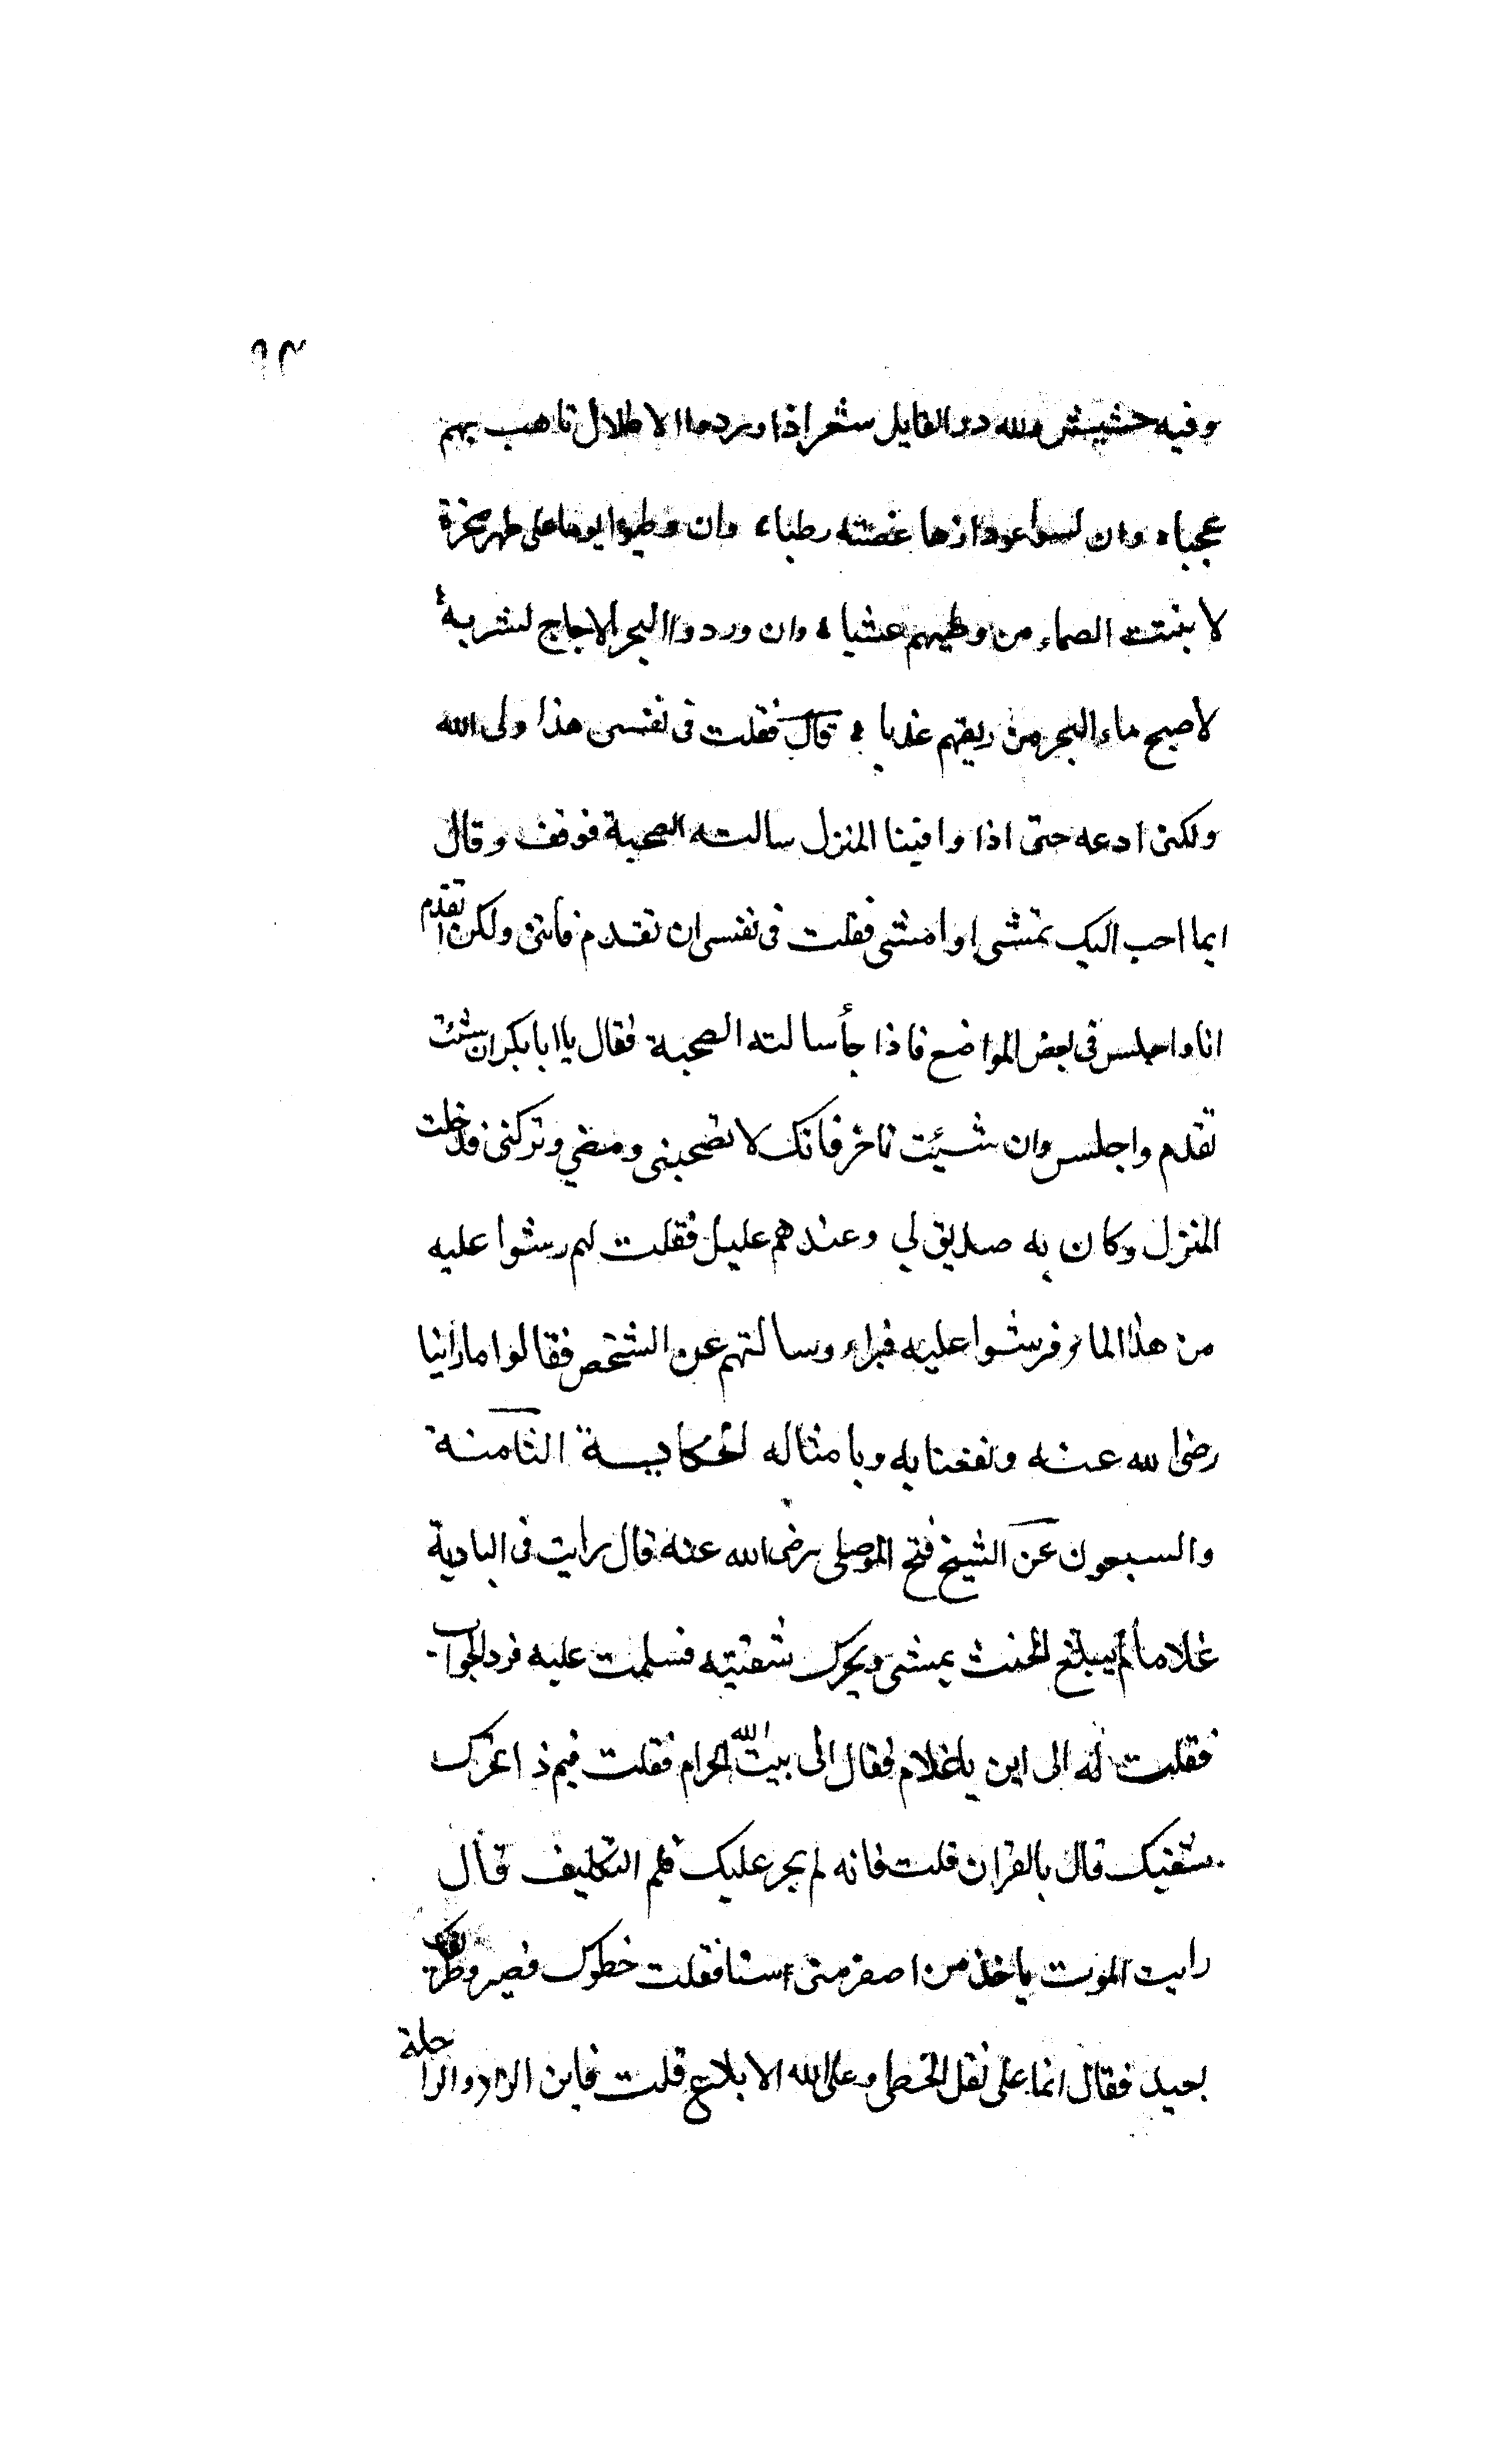 ٩٣
وفيه حشيش ولله در القايل شعر اذا وردوا الاطلال تاهت بهم
عجباه وان لمسوا عودا زها غصنه رطباء وان وطيوا يوما على ظهر صخرة
لانبتت الصماء من وطيهم عشبا ه وان وردوا البحر الاجاج لشربه
لاصبح ماء البحر من ريقهم عذبا ه قال فقلت فى نفسى هذا ولى الله
ولكنى ادعه حتى اذا وافينا المنزل سالته الصحبة فوقف وقال
ايما احب اليك تمشى او امشى فقلت فى نفسى ان تقدم فأتنى ولكن اتقدم
انا واجلس فى بعض المواضع فاذا جأ سالته الصحبة فقال يا ابا بكر ان شئت
تقدم واجلس وان شيئت تاخر فانك لا تصحبنى ومضي وتركنى فدخلت
المنزل وكان به صديق لي وعندهم عليل فقلت لهم رشوا عليه
من هذا الماء فرشوا عليه فبراء وسالتهم عن الشخص فقالوا ما راينا
رضى الله عنه ونفعنا به وبامثاله الحكاية الثامنة
والسبعون عن الشيخ فتح الموصلى رضى الله عنه قال رايت فى البادية
غلاما لم يبلغ الحنث يمشى ويحرك شفتيه فسلمت عليه فرد الجواب
فقلت له الى اين يا غلام فقال الى بيت الله الحرام فقلت فيم ذا تحرك
شفتيك قال بالقران قلت فانه لم يجر عليك قلم التكليف قال
رايت الموت ياخذ من اصغر منى سنا فقلت خطوك قصير وطريقك
بعيد فقال انما على نقل الخطى وعلى الله الابلاغ قلت فاين الزاد والراحلة